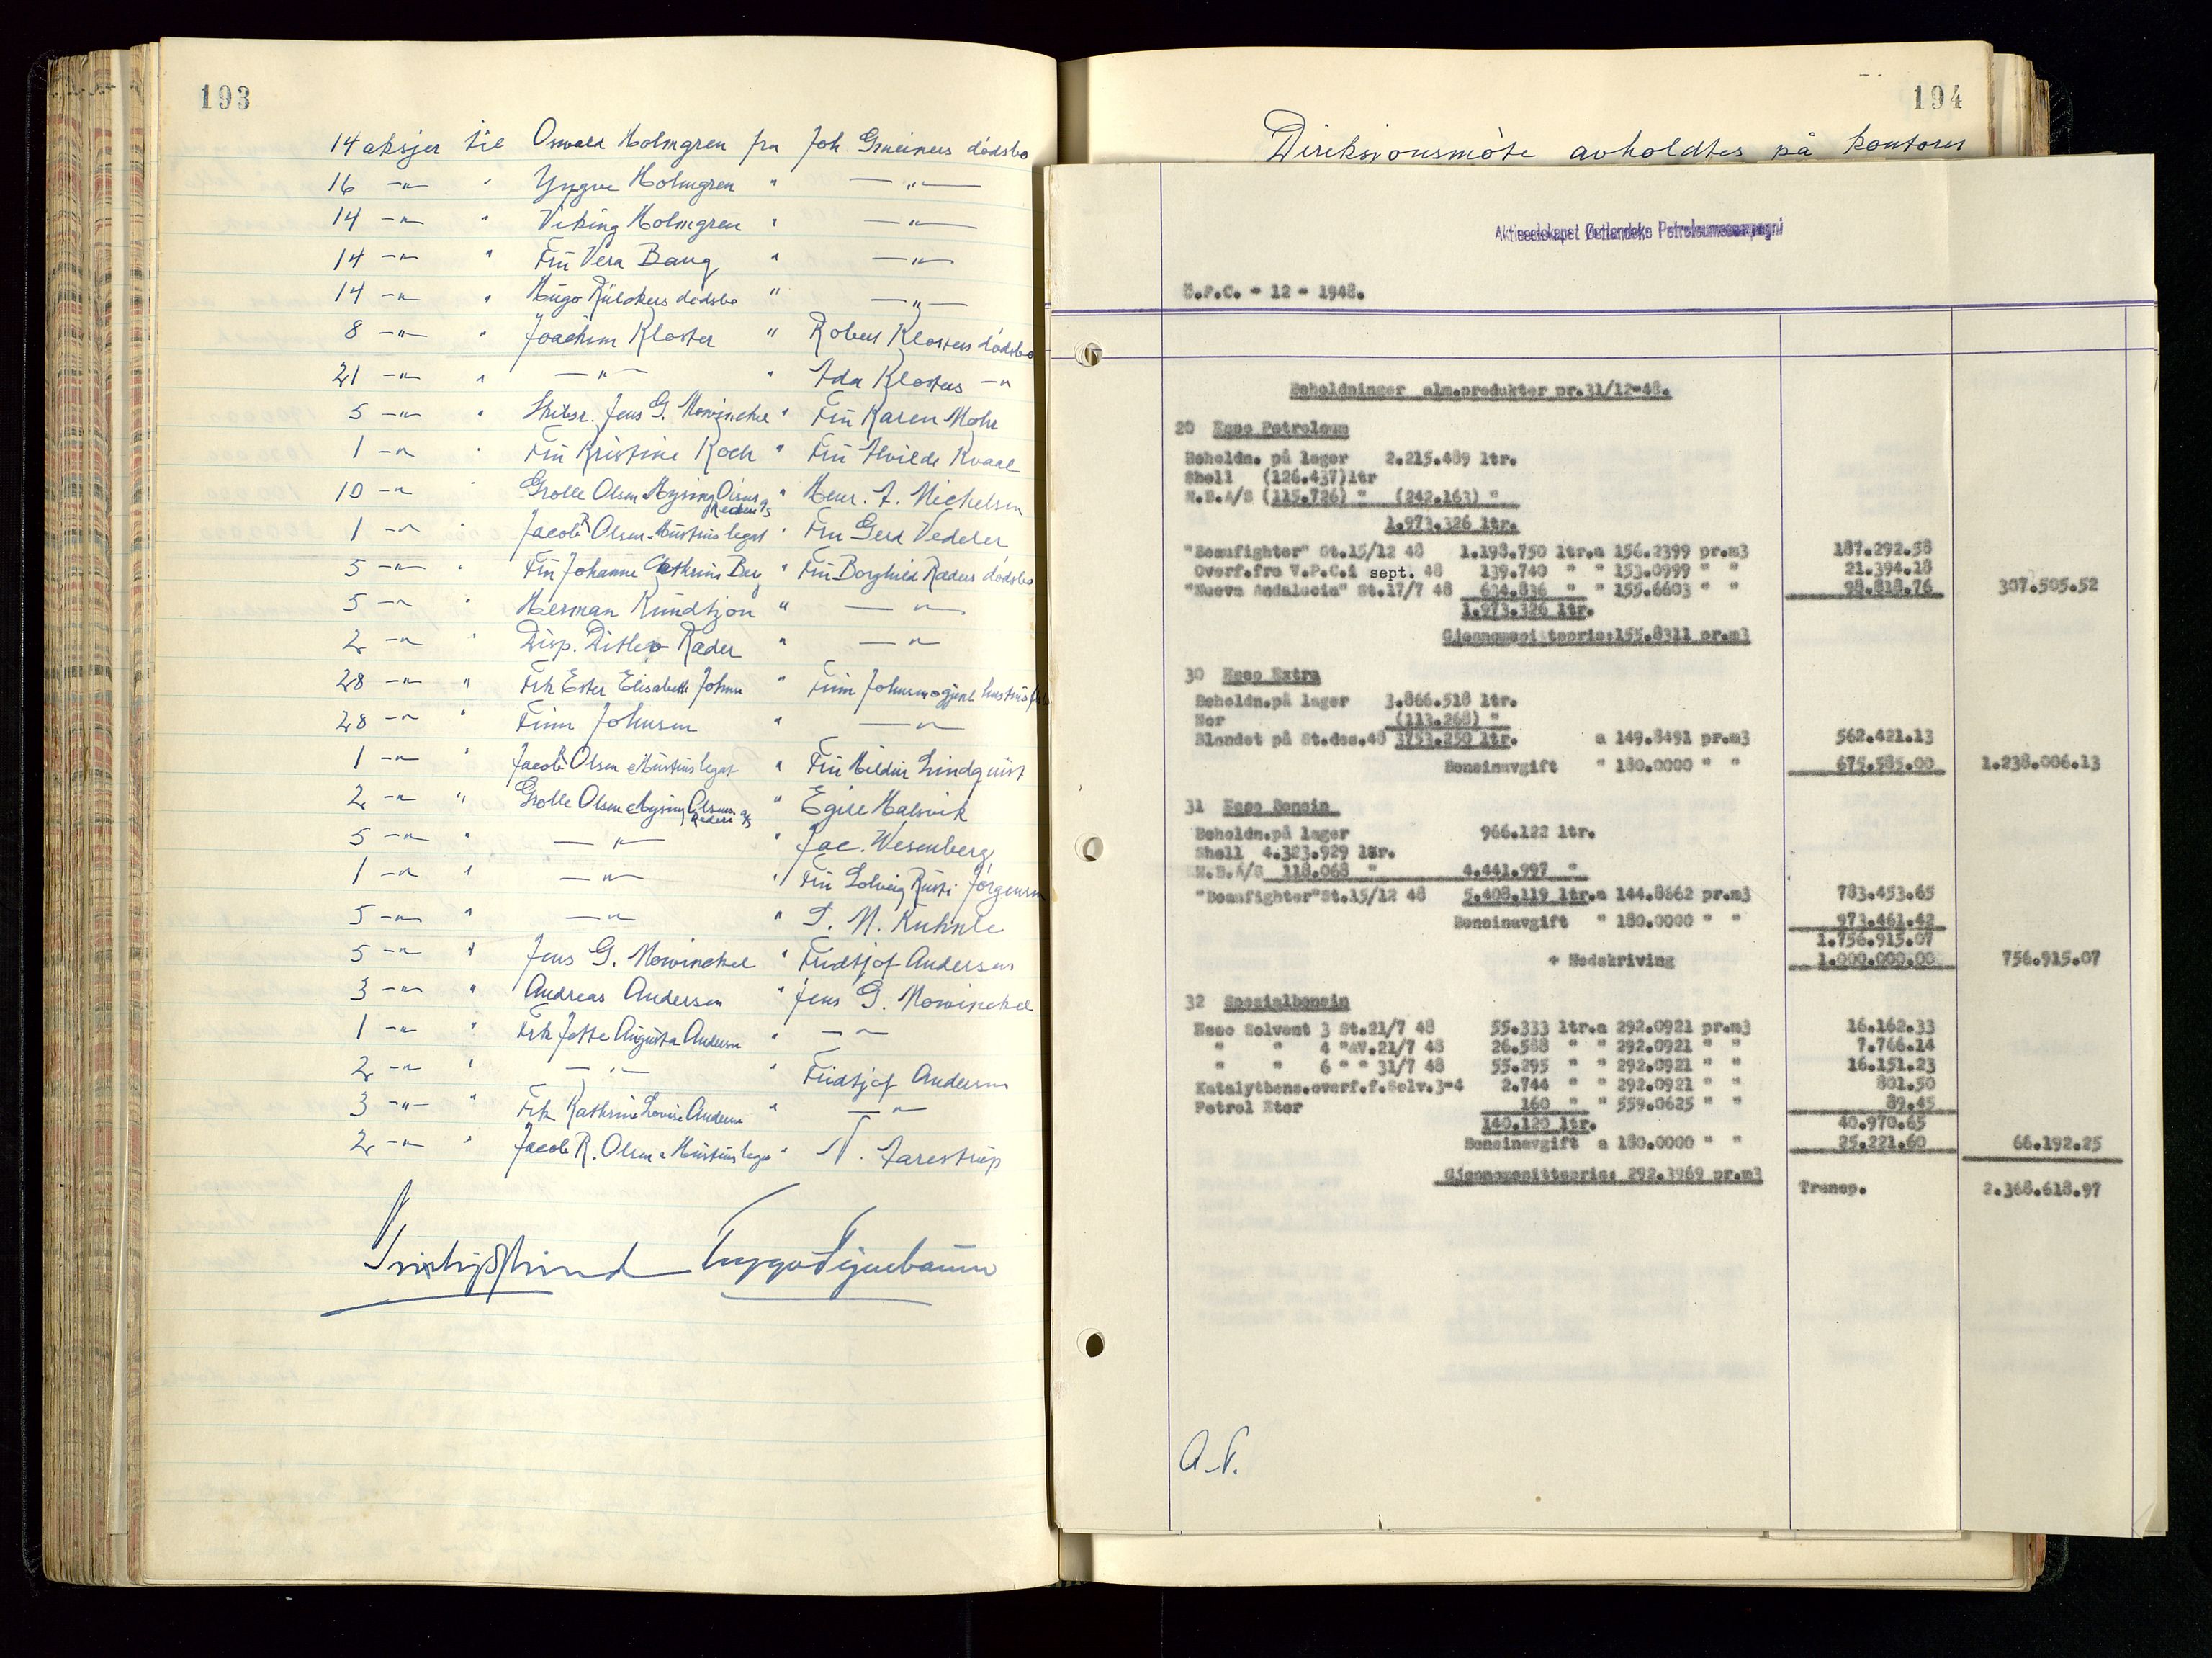 193
14 aksjer til Oswald Holmgren fra Joh. Gmeiners dødsbo
16 -"- " Yngve Holmgren " -"-
14 -"- " Viking Holmgren " -"-
14 -"- " Fru Vera Bang " -"-
14 -"- " Hugo Rülckers dødsbo " -"-
8 -"- " Joachim Kloster " Robert Klosters dødsbo
21 -"- " -"- " Ada Klosters -"
5 -"- " Skibsr. Jens G. Mowinckel " Fru Karen Mohr
1 -"- " Fru Kristine Koch " Fru Alvilde Kvaal
10 -"- " Grolle Olsen & Hysing Olsens Rederi A/S " Henr. A. Michelsen
1 -"- " Jacob R Olsen & Hustrus legat " Fru Gerd Vedeler
5 -"- " Fru Johanne Cathrine Berg " Fru Borghild Ræders dødsbo
5 -"- " Herman Kundtzon " -"-
2 -"- " Disp. Ditlep Ræder " -"-
28 -"- " Frk Ester Elisabeth Johnsen " Finn Johnsen og gjenl. hustrus
28 -"- " Finn Johnsen " -"-
1 -"- " Jacob R Olsen & Hustrus legat " Fru Hildur Lindquist
2 -"- " Grolle Olsen & Hysing Olsens Rederi A/S " Egill Halsvik
5 -"- " -"- " Jac. Wesenberg
1 -"- " -"- " Fru Solveig Jørgensen
5 -"- " -"- " T. M. Kuhnle
5 -"- " Jens G. Mowinckel " Fridtjof Andersen
3 -"- " Andreas Andersen " Jens G. Mowinckel
1 -"- " Frk Jette Augusta Andersen " -"-
2 -"- " -"- " Fridtjof Andersen
3 -"- " Frk Kathrine Lovise Andersen " -"-
2 -"- " Jacob R. Olsen & Hustrus legat " N. Aarestrup
194
Direksjonsmøte avholdtes på kontoret
Aktieselskapet Østlandske Petroleumscompagni
Ö.P.C. - 12 - 1948.
Beholdninger alm.produkter pr.31/12-48.
20 Esso Petroleum
Beholdn. på lager 2.215.489 ltr.
Shell (126.437)ltr
N.B.A/S (115.726) " (242.163) "
1.973.326 ltr.
"Beaufighter" St.15/12 48 1.198.750 ltr.a 156.2399 pr.m3 187.292.58
Overf.fra V.P.C.i sept. 48 139.740 " " 153.0999 " " 21.394.18
"Nueva Andalucia" St.17/7 48 634.836 " " 155.6603 " " 98.818.76 307.505.52
1.973.326 ltr.
Gjennomsnittspris:155.8311 pr.m3
30 Esso Extra
Beholdn.på lager 3.866.518 ltr.
Nor (113.268) "
Blandet på St.des.48 3753.250 ltr. a 149.8491 pr.m3 562.421.13
Bensinavgift " 180.0000 " " 675.585.00 1.238.006.13
31 Esso Bensin
Beholdn.på lager 966.122 ltr.
Shell 4.323.929 ltr.
N.B.A/S 118.068 " 4.441.997 "
"Beaufighter"St.15/12 48 5.408.119 ltr.a 144.8662 pr.m3 783.453.65
Bensinavgift " 180.0000 " " 973.461.42
1.756.915.07
+ Nedskriving 1.000.000.00 756.915.07
32 Spesialbensin
Esso Solvent 3 St.21/7 48 55.333 ltr.a 292.0921 pr.m3 16.162.33
" " 4 "AV.21/7 48 26.588 " " 292.0921 " " 7.766.14
" " 6 " " 31/7 48 55.295 " " 292.0921 " " 16.151.23
Katalytbens.overf.f.Solv.3-4 2.744 " " 292.0921 " " 801.50
Petrol Eter 160 " " 559.0625 " " 89.45
140.120 ltr. 40.970.65
Bensinavgift a 180.0000 " " 25.221.60 66.192.25
Gjennomsnittspris: 292.3969 pr.m3
Transp. 2.368.618.97